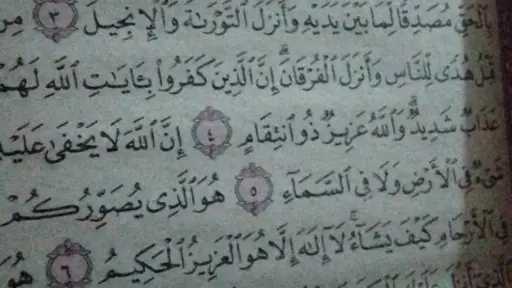 بِٱلْحَقِّ مُصَدِّقًا لِّمَا بَيْنَ يَدَيْهِ وَأَنزَلَ ٱلتَّوْرَىٰةَ وَٱلْإِنجِيلَ ٣ مِن
قَبْلُ هُدًى لِّلنَّاسِ وَأَنزَلَ ٱلْفُرْقَانَ ۗ إِنَّ ٱلَّذِينَ كَفَرُوا۟ بِـَٔايَـٰتِ ٱللَّهِ لَهُمْ
عَذَابٌ شَدِيدٌ ۗ وَٱللَّهُ عَزِيزٌ ذُو ٱنتِقَامٍ ٤ إِنَّ ٱللَّهَ لَا يَخْفَىٰ عَلَيْهِ
شَىْءٌ فِى ٱلْأَرْضِ وَلَا فِى ٱلسَّمَآءِ ٥ هُوَ ٱلَّذِى يُصَوِّرُكُمْ
فِى ٱلْأَرْحَامِ كَيْفَ يَشَآءُ ۚ لَآ إِلَـٰهَ إِلَّا هُوَ ٱلْعَزِيزُ ٱلْحَكِيمُ ٦ هُوَ